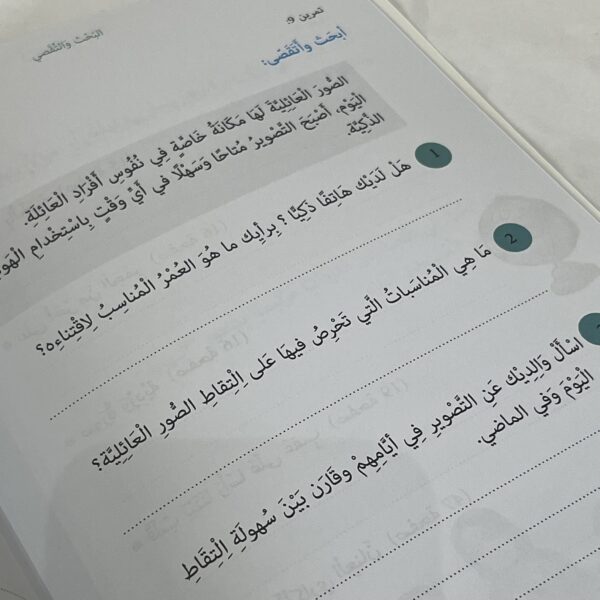 تمرين 9:
البَحْث وَالتَّقَصّي
أَبحَث وأَتَقَصّى:
الصُّوَرِ الْعَائِلِيَّةَ لَهَا مَكَانَةٌ خَاصَّةٌ فِي نُفُوسِ أَفْرَادِ الْعَائِلَةِ.
الْيَوْم، أَصْبَحَ التَّصْوِيرُ مُتَاحًا وَسَهْلًا في أَيِّ وَقْتٍ بِاسْتِخْدَامِ
الذَّكِيَّةِ.
1 هَلْ لَدَيْك هَاتِفًا ذَكِيًّا ؟ بِرأيِك ما هُوَ العُمْرُ الْمُنَاسِبُ لِاقْتِناءِه؟
2 مَا هِي الْمُنَاسَبَاتُ الَّتي تَحْرِصُ فيهَا عَلَى اِلْتِقَاطِ الصُّورِ الْعَائِلِيَّة؟
اسْأَلْ وَالِدِيْك عَنِ التَّصْوِيرِ فِي أَيَّامِهِمْ وقَارَن بَيْنَ سُهولَةِ اِلْتِقَاطِ
الْيَوْمَ وَفي الماضي.